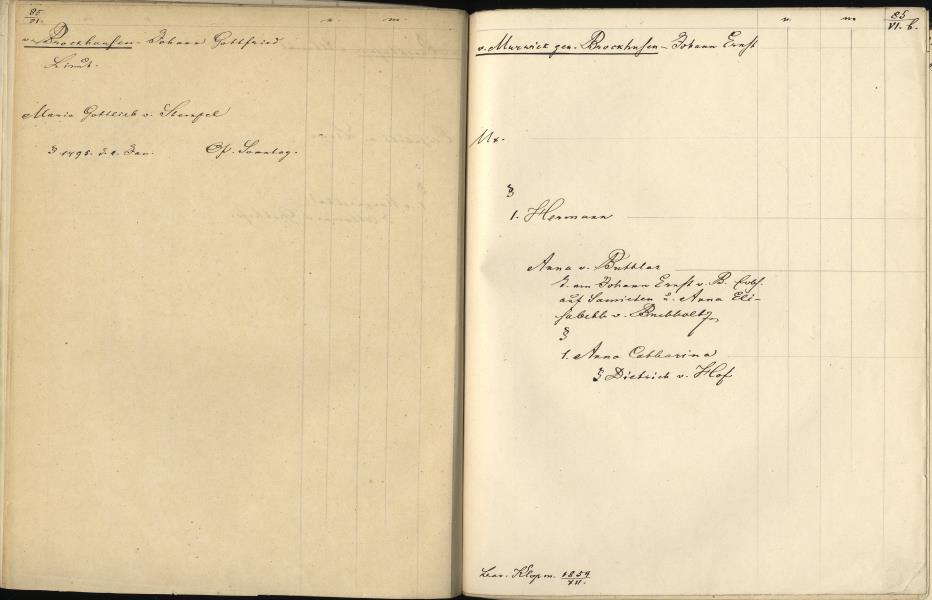 85
VI.
n. m.
v. Brockhausen - Johann Gottfried
Lieut.
Maria Gottlieb v. Stempel
1795. d. 2. Jan. Sonntag.
n. m. 85
VI. b.
v. Murwick gen. Brockhusen - Johann Ernst
Ux.
1. Hermann
Anna v. Buttlar
Johann Ernst v. B. Erbh.
auf Samiten u. Anna Eli-
sabeth v. Buchholtz
1. Anna Catharina
Dietrich v. Hof
Klopm. 1854
VII.